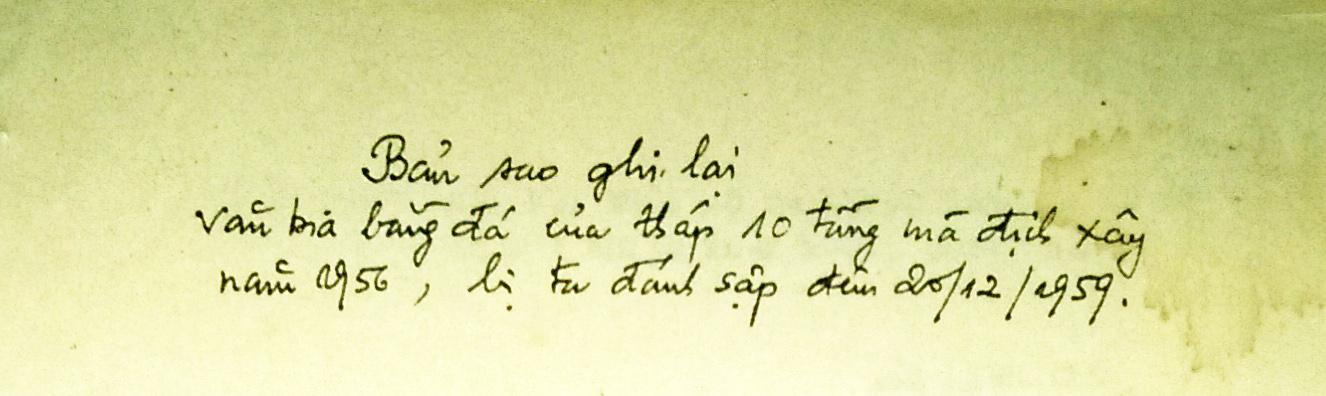 Bản sao ghi lại
văn bia bằng đá của tháp 10 tầng mà địch xây
năm 1956, bị ta đánh sập đêm 20/12/1959.